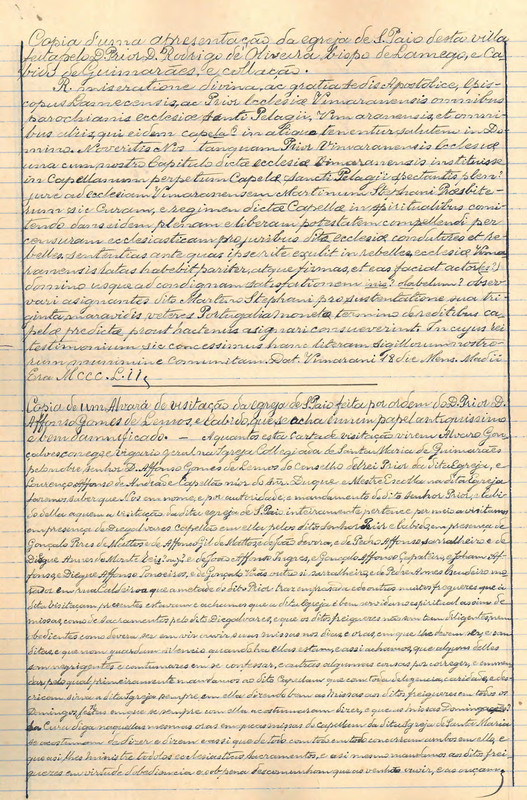 Copia d'uma apresentação da egreja de S. Paio desta villa
feita pelo D. Prior D. Rodrigo de Oliveira, bispo de Lamego, e Ca-
bido de Guimarães, e collação.
R. miseratione divina, ac gratia sedis Apostolice, Epis-
copus Lamecensis, ac Prior Ecclesiæ Vimaranensis omnibus
parochianis ecclesiæ Santi Pelagii, Vimaranensis, et omni-
bus aliis, qui eidem capela? in aliquo tenentur salutem in Do-
mino. Noveritis Nos tanquam Prior Vimaranensis Ecclesiæ
una cum nostro Capitulo dictæ ecclesiæ Vimaranensis instituisse
in Capellanum perpetum Capelæ Sancti Pelagii spectantis pleni
jure ad Ecclesiam Vimaranensem Martinum Stephani Presbite-
rum sic Curam, e regimen dictæ Capellæ in spiritualibus comi-
tendo dans eidem plenam e liberam potestatem compellendi per
censuram ecclesiasticam pro juribus ditæ ecclesiæ condutores et re-
belles. sententias ante quas ipse rite in rebelles, ecclesiæ Vima-
ranensis latas habebit pariter, atque firmas, et eas faciat actore (?)
domino usque ad condignam satisfationem obser-
vari asignantes dito Martino Stephani pro sustentatione sua tri-
ginta maravidis, vetores Portugalia moneta termino de reditibus ca-
pelæ predictæ prout hactenus asignari consueverint. In cujus rei
testemonium sic concessimus hanc literam sigillorum nostro-
rum munimine Comunitam. Dat. Vimarani 18 die Mens. Madii
Era MCCC.L.II,
Copia de um Alvará de visitação da egreja de S. Paio feita por ordem do D. Prior D.
Affonso Gomes de Lemos, e Cabido, que se acha num papel antiquissimo
e bem damnificado. — A quantos esta Carta de visitação virem Alvaro Gon-
çalves conego, e vigario geral na Igreja Collegiada de Santa Maria de Guimarães
pelo nobre senhor D. Affonso Gomes de Lemos do Conselho del rei Prior da dita Egreja, e
Lourenço Affonso de Andrea e Capellão mór do snr. Duque e Mestre Escolla na dita Igreja
fasemos saber que Nós em nome, e por autoridade, e mandamento do dito Senhor Prior, e Cabi-
do della a quem a visitação da dita egreja de S. Paio inteiramente pertence per meio a visitamos
em presença de Diego alvares capelão em ella pelos ditos senhores Prior e Cabido, e em presença de
Gonçalo Pires de Mattos e de Affonso Gil de Mattos, e de João de vora, e de Pedro Affonso sarralheiro e de
Diegue e de João Affonso Ingres, e Gonçalo Affonso Çapateiro, e Joham Af-
fonso, e Diegue Affonso Tonoeiros, e de Gonçalo sarralheiro, e de Pedre Annes mo-
rador em que ametade do dito Prior traz e outros muitos fregueses que á
dita visitaçam presentes estavam e achemos que a dita Egreja é bem servida no espiritual assim de
missas, como de sacramentos pelo dito Diego alvares, e que os ditos freigueres nom sam tam deligentes, nem
obedientes como devem ser em vir ouvir suas missas nos dias, e oras, em que lhe devem ser, e sam
ditas, e que nom querdam silencio quando em ellas estam, e assi achamos, que alguns delles
sam negrigentes, e contumazes em se confessar, e outras algumas cousas por correger, e emmen-
dar, pelo qual primeiramente mandamos ao dito Capellam que com toda diligencia, curidade, e des-
cricam sirva a dita Igreja sempre, em ella dizendo bem as Missas aos ditos freigueres em todo os
Domingos, festas em que se sempre em ella acostumaram dizer, e que as missas Domingo
da Cura diga naquellas mesmas oras em que as missas do capellam da dita Igreja de Santa Maria
se acostumam de dizer e dizem e assi que de todo em todo concorram ambos em ella, e
que assi lhes menistre todolos ecclesiasticos Sacramentos, e assi mesmo mandamos aos ditos frei-
gueres em virtude de bediancia e sob pena desconunham que as venham ouvir, e as ouçam,